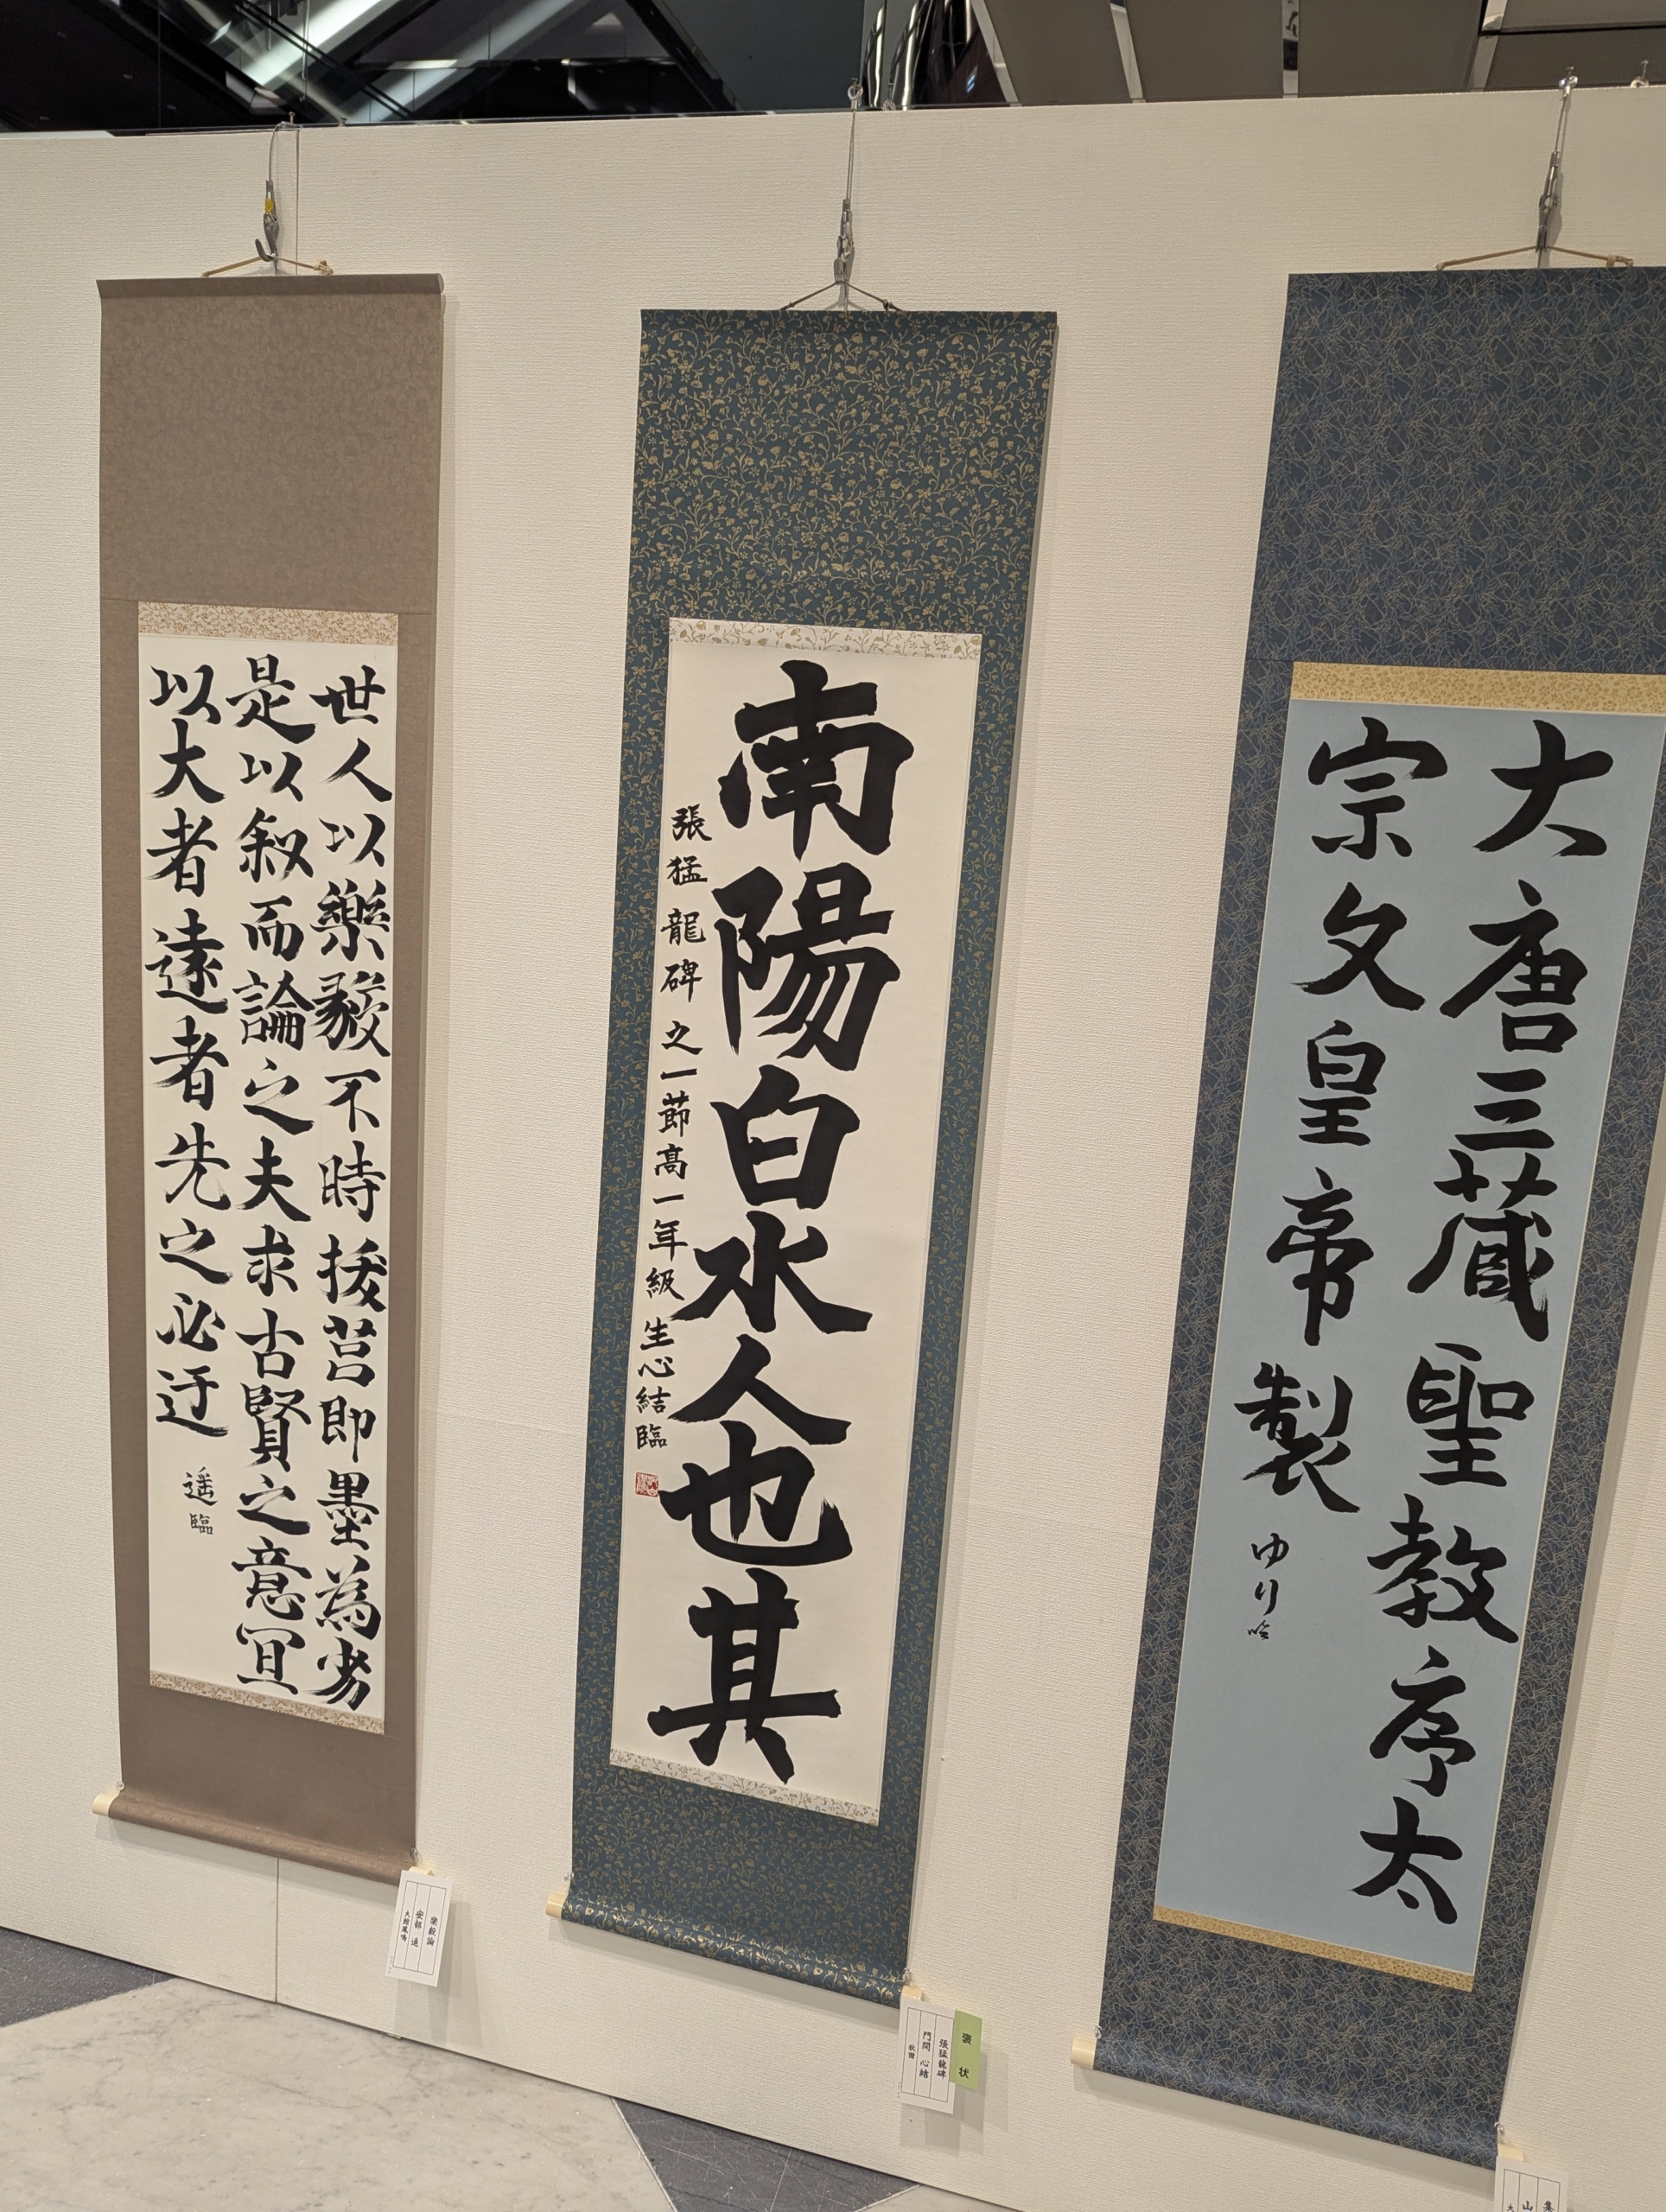 大唐三蔵聖教序太
宗文皇帝製
ゆり臨
南陽白水人也其
張猛龍碑之一節高一年級生心結臨
世人以樂毅不時拔莒即墨為劣
是以叙而論之夫求古賢之意宜
以大者遠者先之必迂
遥臨
樂毅論
安部 遥
大館鳳鳴
褒状
張猛龍碑
門間 心結
秋田
集
山
大